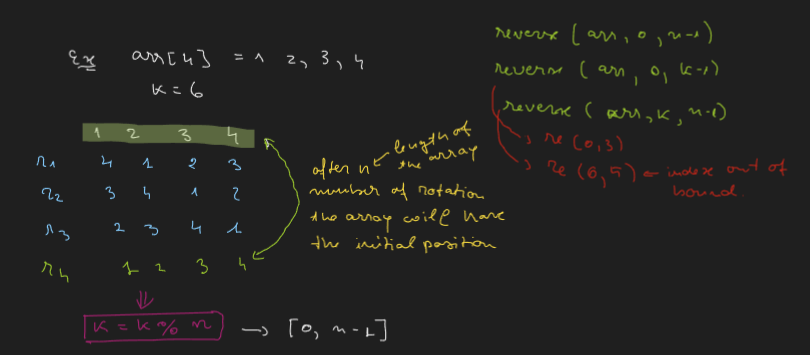 Ex arr[4] = 1 2, 3, 4
K = 6
1 2 3 4
r1 4 1 2 3
r2 3 4 1 2
r3 2 3 4 1
r4 1 2 3 4
K = K % n → [0, n-1]
after n ← length of the array
number of rotation
the array will have
the initial position
reverse (arr, 0, n-1)
reverse (arr, 0, k-1)
reverse (arr, K, n-1)
re (0,3)
re (0,5) ← index out of
bound.